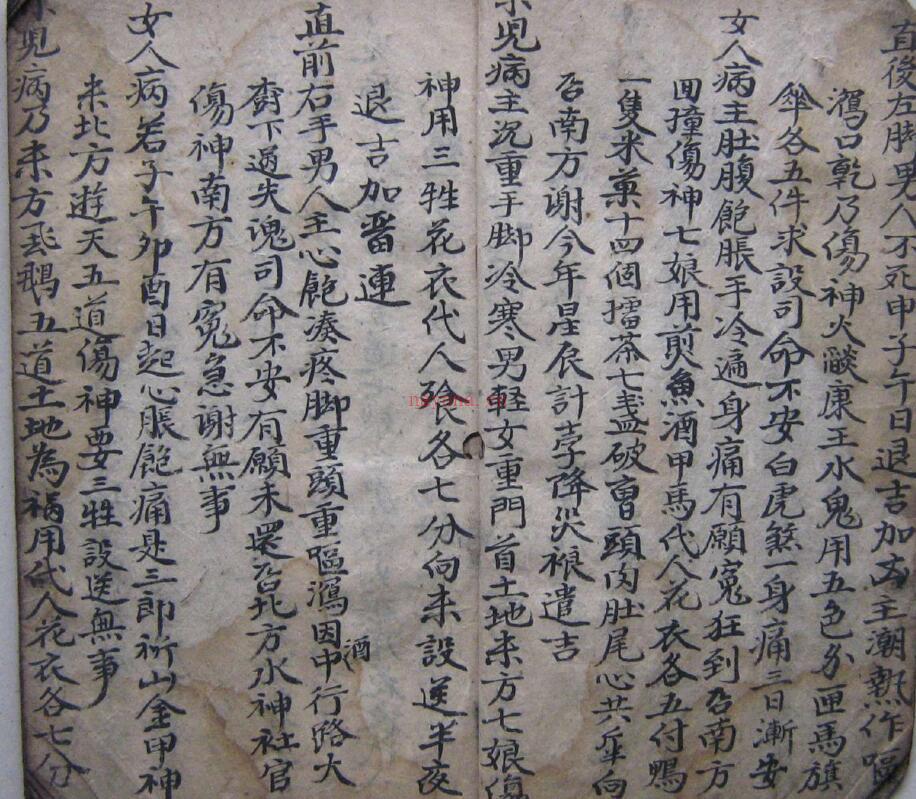 直後左脚男人不死申子午日退吉加主潮熱作嘔
瀉口乾乃傷神火燄康王水鬼用五色錢匣馬旗
傘各五件求設司命不安白虎煞一身痛三日漸安
女人病主肚腹飽脹手冷遍身痛有願寃狂到召南方
回撞傷神七娘用煎魚酒甲馬代人花衣各五付鴨
一隻米菓十四個擂茶七盞破頭肉肚尾心共向
召南方謝今年星辰計孛降災禳遣吉
小児病主沉重手脚冷寒男軽女重門首土地未方七娘傷
神用三牲花衣代人飱各七分向未設送半夜
退吉加連
直前右手男人主心飽湊疼脚重頭重嘔瀉因中行路大
樹下過失魂司命不安有願未還召北方水神社官
傷神南方有寃急謝無事
酒
女人病若子午卯酉日起心脹飽痛是三郎祈山金甲神
未北方遊天五道傷神要三牲設送無事
小児病乃未方飛鵝五道土地為禍用代人花衣各七分